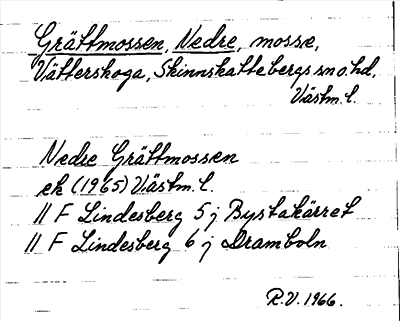 Grättmossen, Nedre, mosse,
Vätterskoga, Skinnskattebergs sn o. hd,
Västm. l.
Nedre Grättmossen
ek (1965) Västm. l.
// F Lindesberg 5 j Bystakärret
// F Lindesberg 6 j Dramboln
R.V. 1966.